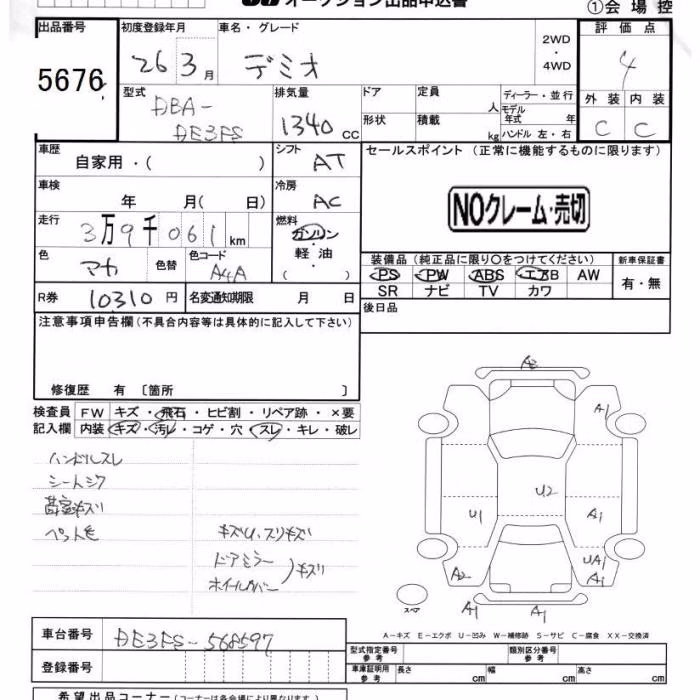 オークション出品申込書
①会場控
出品番号 5676
初度登録年月 26 3月
車名・グレード デミオ
2WD・4WD
評価点 4
外装 C 内装 C
型式 DBA-DE3FS
排気量 1340 CC
ドア 形状
定員 人
積載 kg
ディーラー・並行
モデル年式 年
ハンドル 左・右
車歴 自家用・( )
シフト AT
セールスポイント (正常に機能するものに限ります)
NOクレーム・売切
車検 年 月( 日)
冷房 AC
走行 3万9千061km
燃料 ガソリン・軽油・( )
色 マカ 色替 色コード A4A
装備品 (純正品に限り〇をつけてください)
新車保証書
PS PW ABS エアB AW
SR ナビ TV カワ
有・無
R券 10310円 名変通知期限 月 日
後日品
注意事項申告欄 (不具合内容等は具体的に記入して下さい)
修復歴 有 〔箇所 〕
検査員記入欄
FW キズ・飛石・ヒビ割・リペア跡・×要
内装 キズ・汚レ・コゲ・穴・スレ・キレ・破レ
ハンドルスレ
シートシワ
ペット毛
キズU、スリキズ
ドアミラー
ホイルカバー
キズリ
A1
U2
U1 A1
A2 UA1 A1
スペア
A1 A1
A-キズ E-エクボ U-凹み W-補修跡 S-サビ C-腐食 XX-交換済
車台番号 DE3FS-568597
登録番号
型式指定番号 参考
類別区分番号 参考
車庫証明用 参考 長さ cm 幅 cm 高さ cm
希望出品コーナー (コーナーは各会場により異なります。)